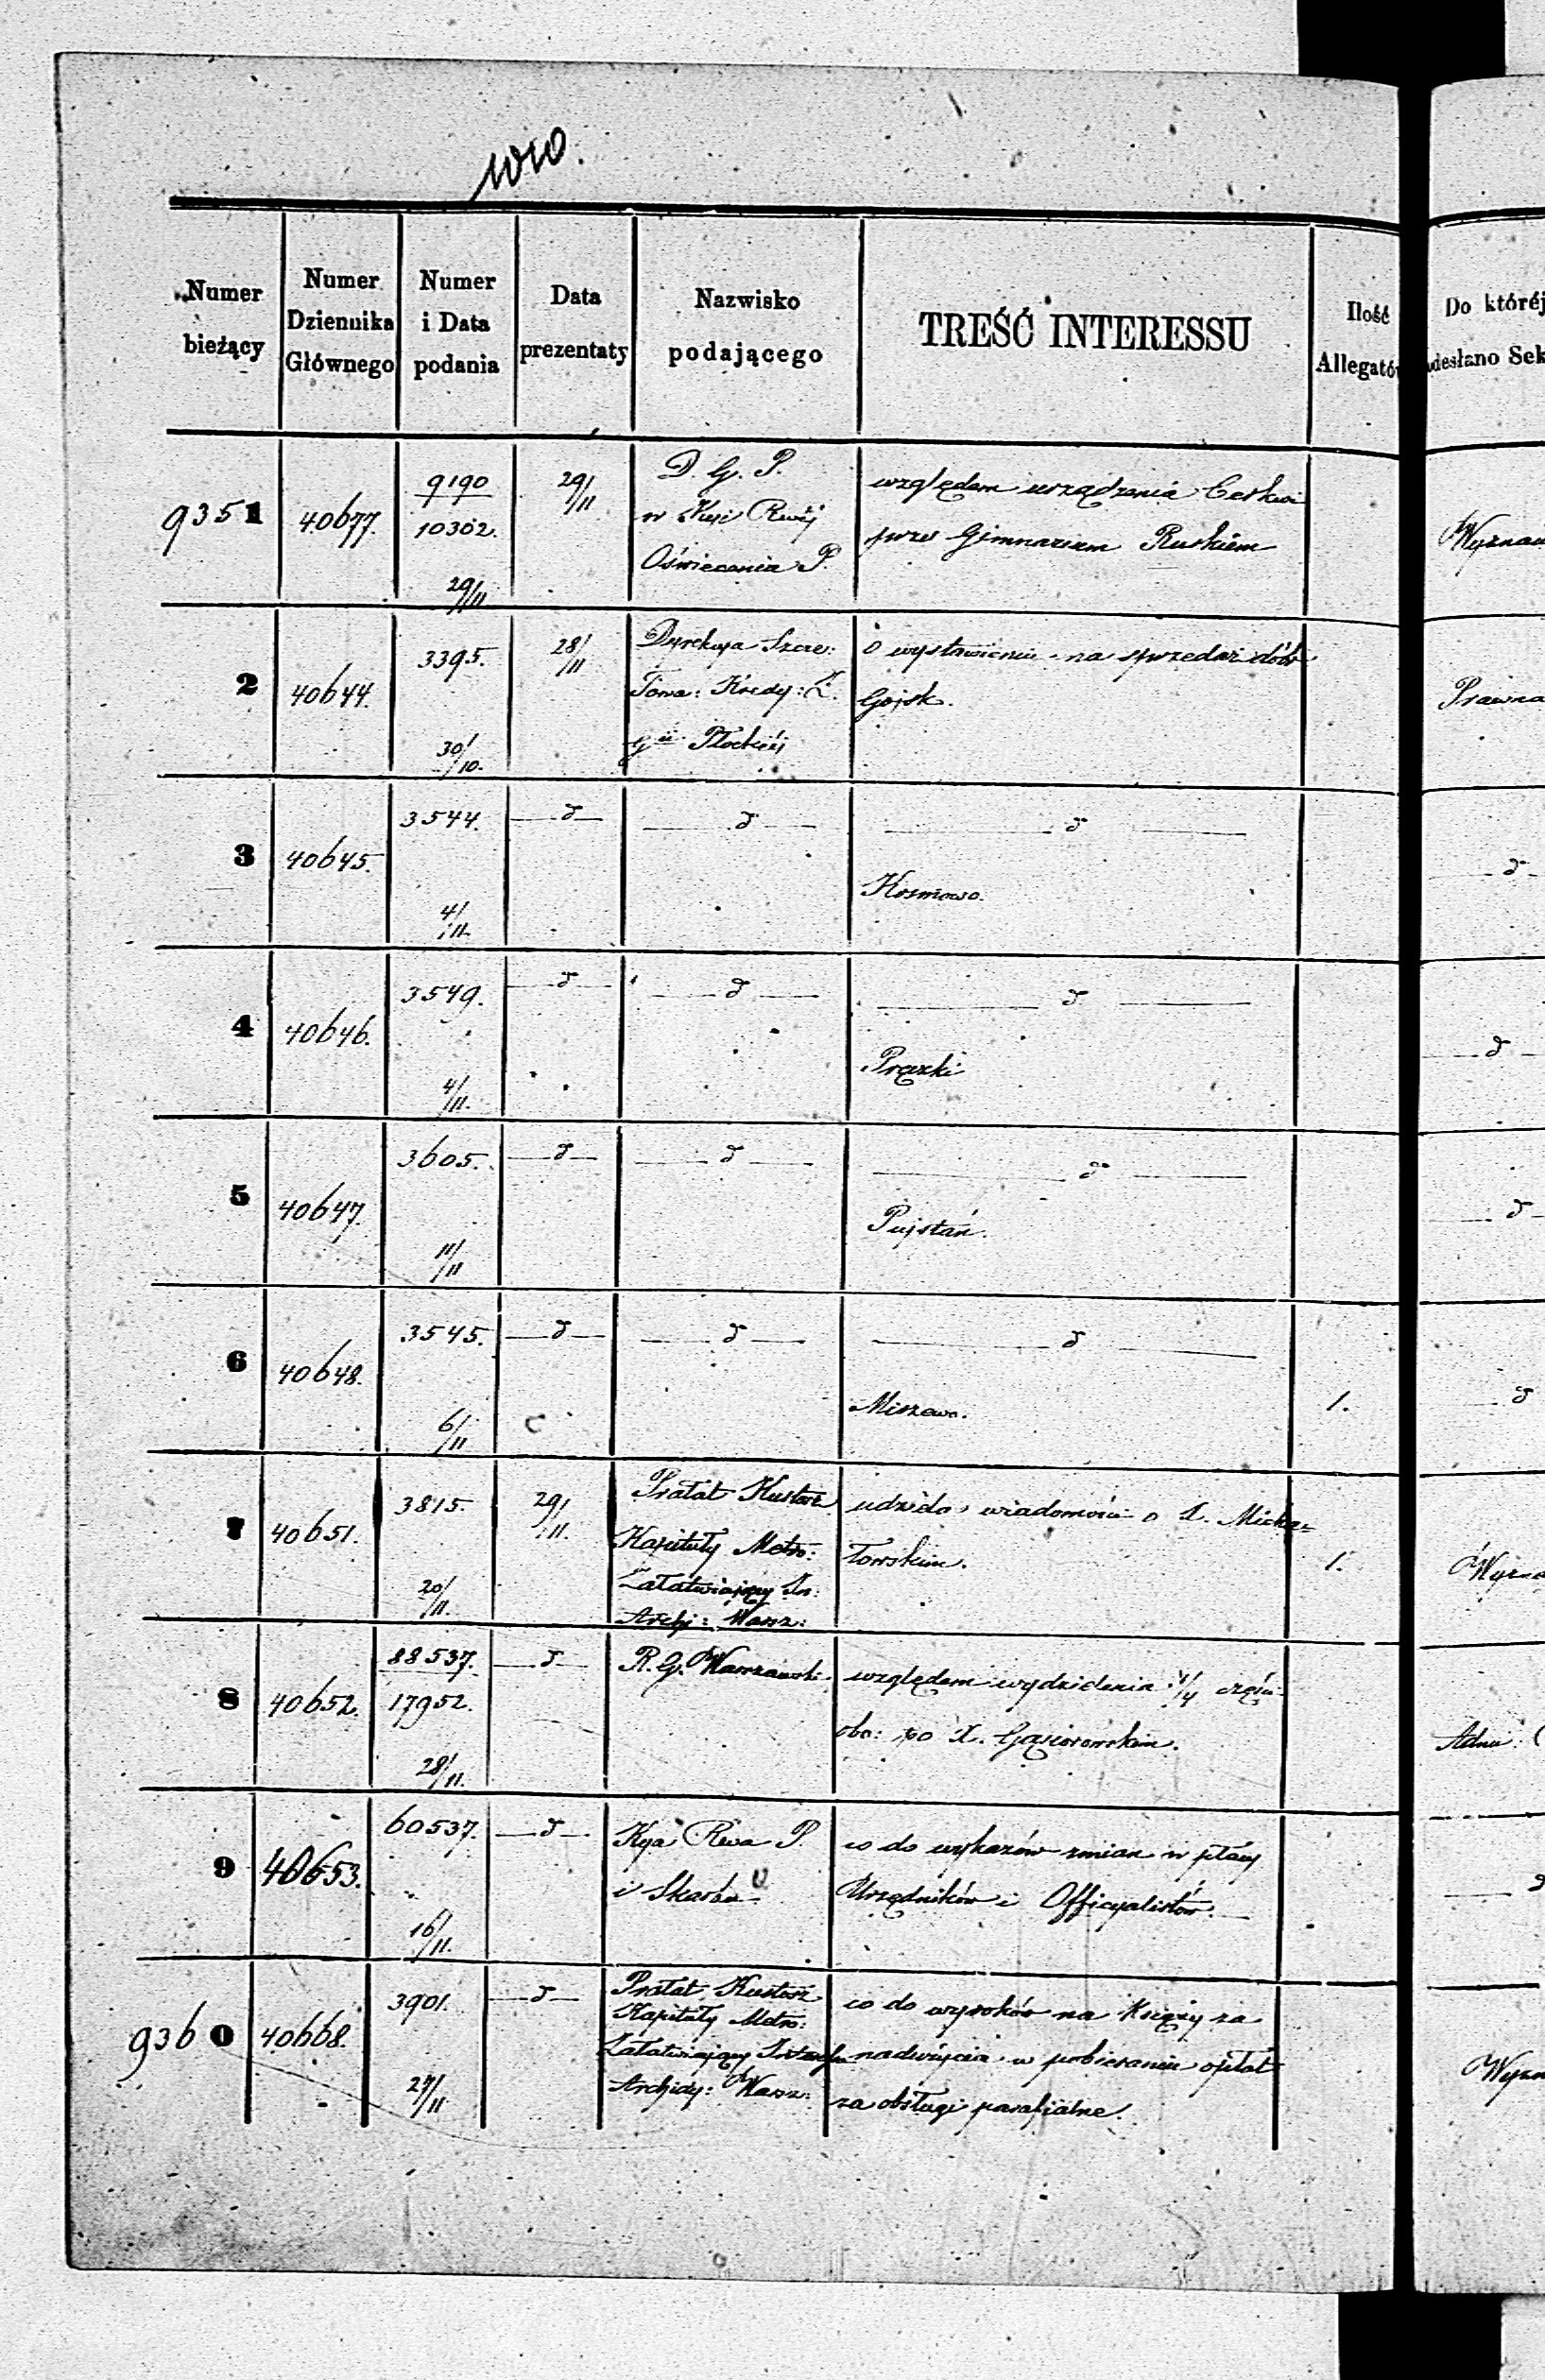 1010.
Numer bieżący
Numer Dziennika Głównego
Numer i Data podania
Data prezentaty
Nazwisko podającego
TREŚĆ INTERESSU
Ilość Allegatów
Do któréj
desłano Sek
9351 40677. 9190 29/11 D. G. P. względem urządzenia Cerkwi
10302. w Kŝsi Rwéj przy Gimnazium Ruskiem Wyznań
29/11 Oświecenia P.
2 40644. 3395. 28/11 Dyrekcya Szcze: o wystawieniu na sprzedaż dóbr
Towa: Kredy: Z. Gojsk. Prawna
30/10. gii Płockiéj
3 40645. 3544. d d d
4/11. Kosmowo. d
4 40646. 3549. d d d
4/11. Prązki d
5 40647. 3605. d d d
11/11 Pujstań. d
6 40648. 3545. d d d
6/11 Miszewo. 1. d
7 40651. 3815. 29/11. Prałat Kustosz udziela wiadomości o X. Micha=
Kapituły Metro: łowskim. 1.
20/11. Załatwiający In:
Archi: Warsz:
8 40652. 88537. d R. G. Warszawski względem wydzielenia 1/4 części
17952. obo: po X. Gąsiorowskim. Adm:
28/11.
9 40653. 60537. d Kya Rwa P. co do wykazów zmian w płacy
i Skarbu Urzędników i Officyalistów. d
16/11.
9360 40668. 3901. d Prałat Kustosz co do wyroków na Księży za
Kapituły Metro:
Załatwiający Interesa nadużycia w pobieraniu opłat
27/11 Archidy: Warsz: za obsługi parafialne.